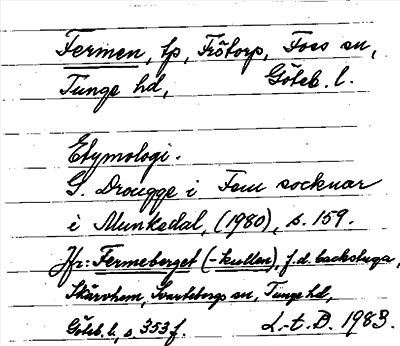 Fermen, tp, Frötorp, Foss sn,
Tunge hd, Göteb. l.
Etymologi.
G. Drougge i Fem socknar
i Munkedal, (1980), s. 159.
Jfr: Fermeberget (-kullen), f.d. backstuga,
Skärvhem, Svarteborgs sn, Tunge hd,
Göteb. l, s. 353 f. L.-t. D. 1983.